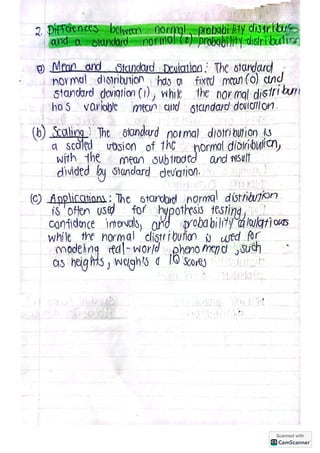 2. Differences between normal probability distribution
and a standard normal (z) probability distribution
a) Mean and Standard Deviation: The standard
normal distribution has a fixed mean (0) and
standard deviation (1), while the normal distribution
has variable mean and standard deviation.
(b) Scaling: The standard normal distribution is
a scaled version of the normal distribution,
with the mean subtracted and result
divided by standard deviation.
(c) Applications: The standard normal distribution
is often used for hypothesis testing,
confidence intervals, and probability calculations
while the normal distribution is used for
modeling real-world phenomena, such
as heights, weights & IQ scores
Scanned with
CamScanner